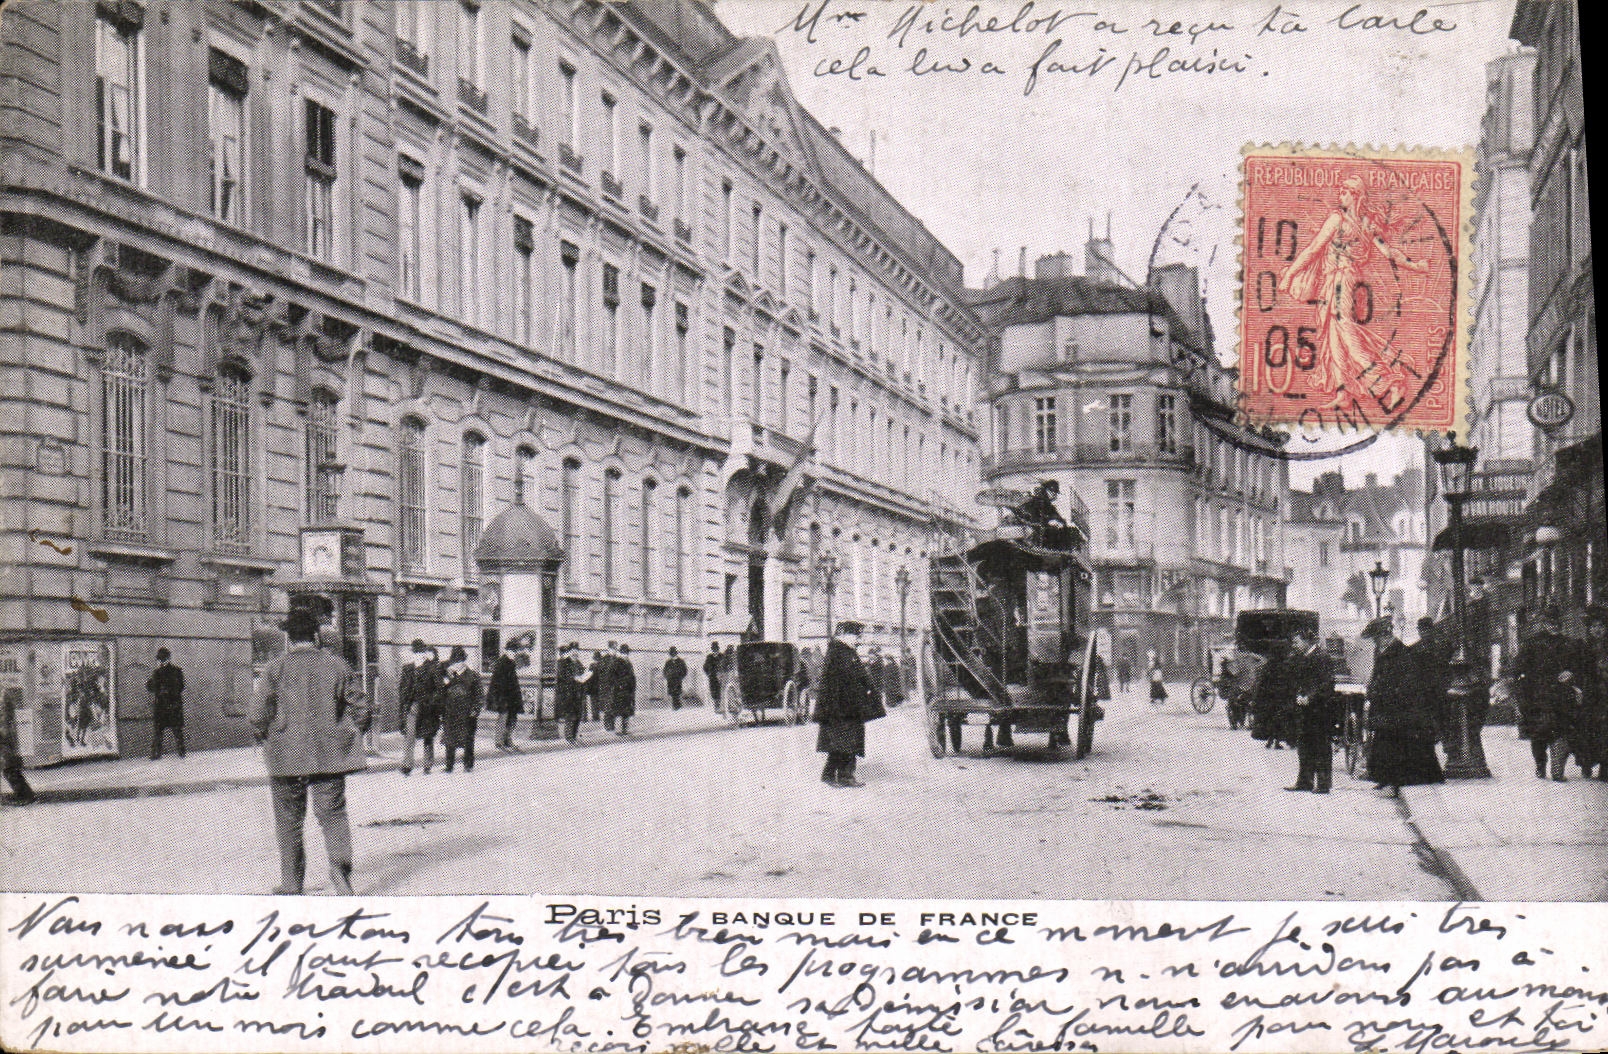 Mme Michelot a reçu ta carte
cela lui a fait plaisir.
REPUBLIQUE FRANÇAISE
10
10
05
10
POSTES
HOTEL
VAN HOUTEN
Paris - BANQUE DE FRANCE
Nous nous portons tous très bien mais en ce moment je suis très
surmenée il faut recopier tous les programmes n. n'arrivons pas à
faire notre travail c'est à donner sa Démission nous en avons au moins
pour un mois comme cela. Embrasse toute la famille pour nous et toi
reçois mille et mille caresses